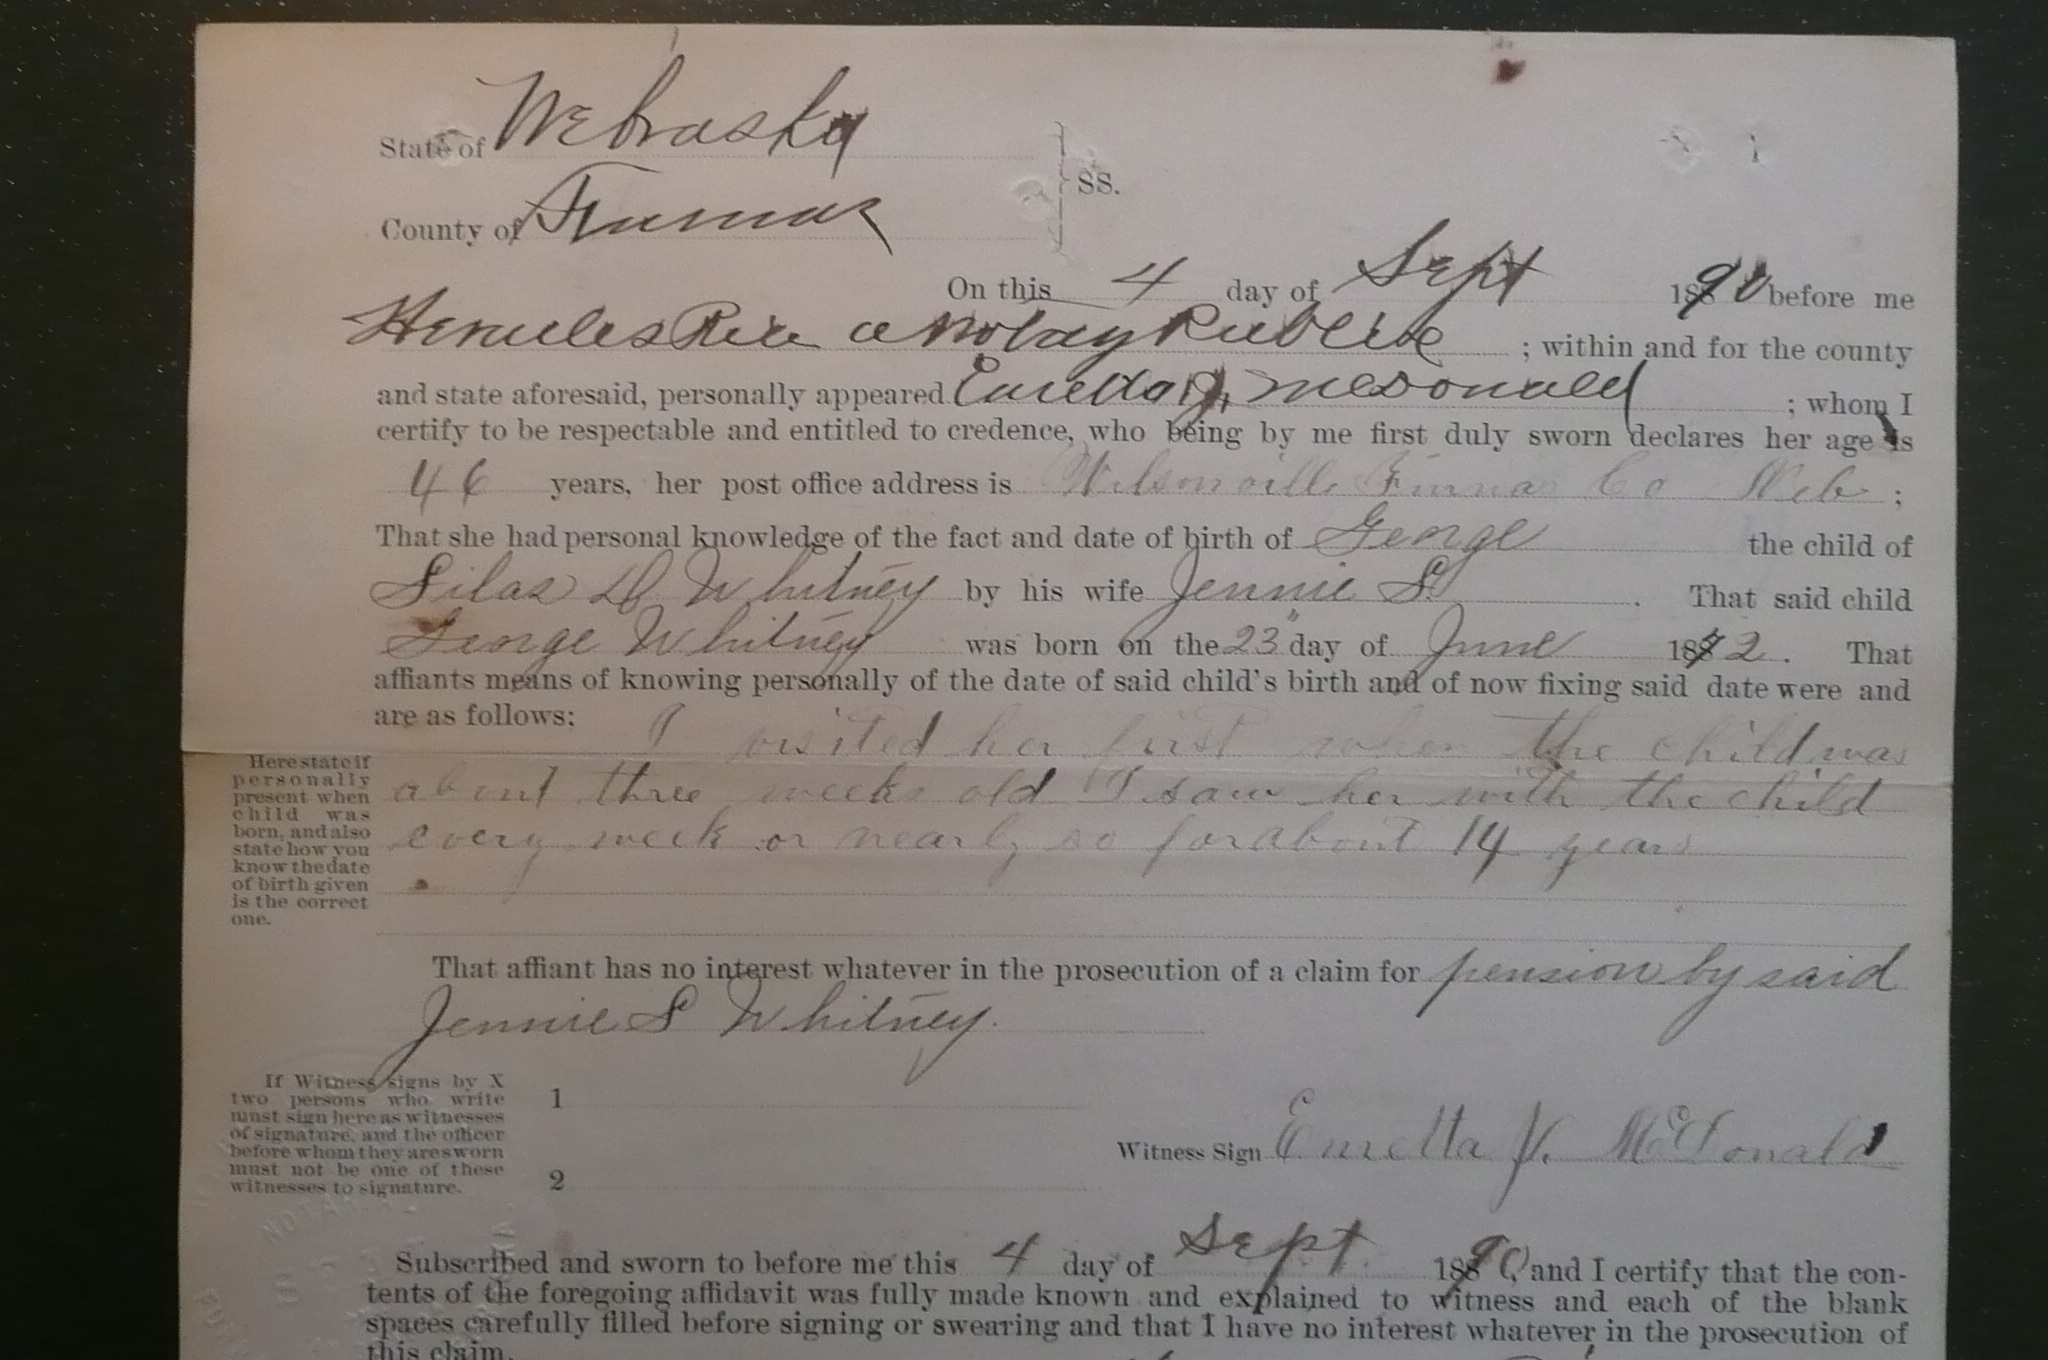 State of Nebraska
SS.
County of Furnas
On this 4 day of Sept 1890 before me
Hercules Rice a Notay Publice ; within and for the county
and state aforesaid, personally appeared Euretta J. McDonald ; whom I
certify to be respectable and entitled to credence, who being by me first duly sworn declares her age is
46 years, her post office address is Wilsonville Furnas Co Neb ;
That she had personal knowledge of the fact and date of birth of George the child of
Silas D Whitney by his wife Jennie S. That said child
George Whitney was born on the 23" day of June 1872. That
affiants means of knowing personally of the date of said child's birth and of now fixing said date were and
are as follows: I visited her first when the child was
about three weeks old I saw her with the child
every week or nearly so for about 14 years
Here state if
personally
present when
child was
born, and also
state how you
know the date
of birth given
is the correct
one.
That affiant has no interest whatever in the prosecution of a claim for pension by said
Jennie S Whitney.
If Witness signs by X
two persons who write
must sign here as witnesses
of signature, and the officer
before whom they are sworn
must not be one of these
witnesses to signature.
1
2
Witness Sign Euretta J. McDonald
Subscribed and sworn to before me this 4 day of Sept 1890, and I certify that the con-
tents of the foregoing affidavit was fully made known and explained to witness and each of the blank
spaces carefully filled before signing or swearing and that I have no interest whatever in the prosecution of
this claim.